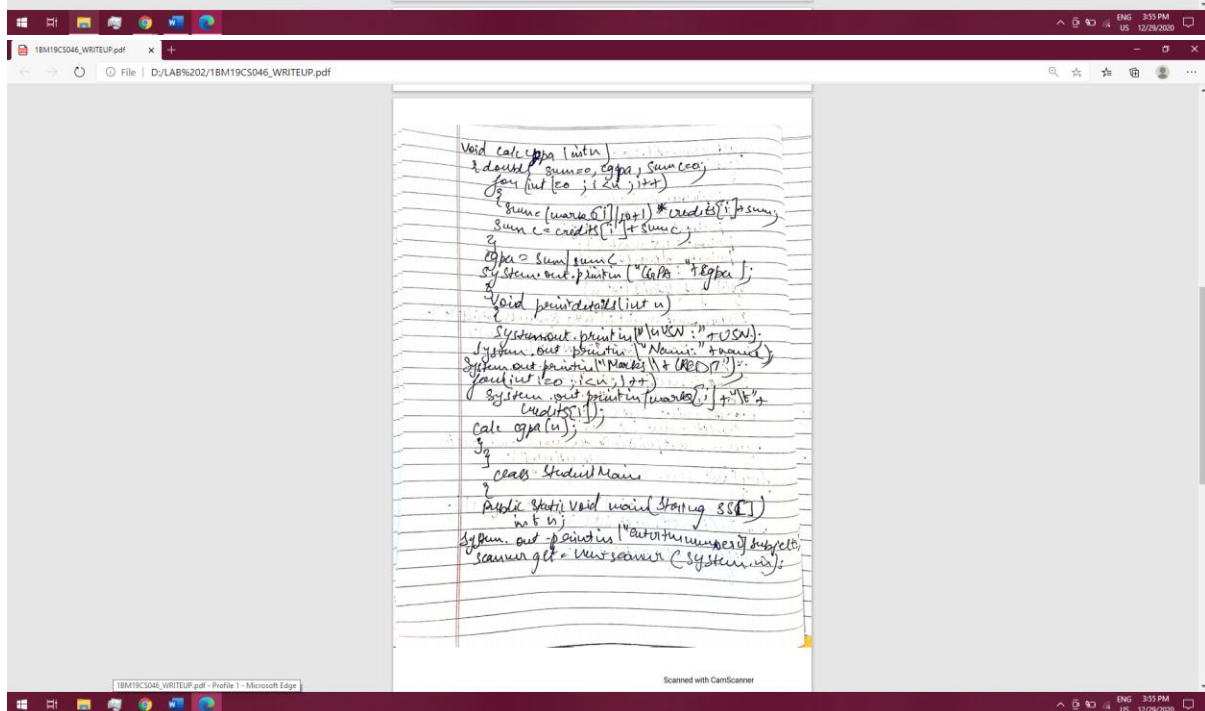 ENG 3:55 PM
US 12/29/2020
1BM19CS046_WRITEUP.pdf
File | D:/LAB%202/1BM19CS046_WRITEUP.pdf
Void calc cgpa (int n)
{ double sum=0, cgpa, sumc=0;
for (int i=0 ; i<n ; i++)
{
sum= (marks[i]/10+1) * credits[i]+sum;
sum c = credits[i]+sumc;
}
cgpa = sum/sumc.
System.out.println ("CGPA : "+cgpa);
}
Void printdetails(int n)
{
System.out.println("\n USN :"+USN).
System.out.println ("Name:"+name);
System.out.println("Marks \t CREDIT");
for(int i=0 ; i<n ; i++)
System.out.println(marks[i]+"\t"+
credits[i]);
calc cgpa(n);
}
}
class StudentMain
{
Public Static Void main(String SS[])
int n;
System.out.println("enter the number of subjects
scanner get = new scanner (System.in);
Scanned with CamScanner
1BM19CS046_WRITEUP.pdf - Profile 1 - Microsoft Edge
ENG 3:55 PM
US 12/29/2020